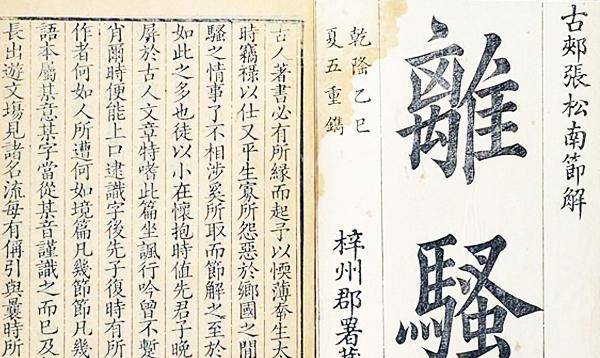 古郟張松南節解
離騷
乾隆乙巳
夏五重鐫
梓州郡署
古人著書必有所緣而起予以愞薄幸生太
時竊祿以仕又平生寡所怨惡於鄉國之間
騷之情事了不相涉奚所取而節解之至於
如此之多也徒以小在懷抱時值先君子晚
屏於古人文章特嗜此篇坐諷行吟曾不蹔
肖爾時便能上口逮識字後先子復時有所
作者何如人所遭何如境篇凡幾節節凡幾
語本屬某意某字當從某音謹識之而已及
長出遊文塲見諸名流每有偁引與曩時所